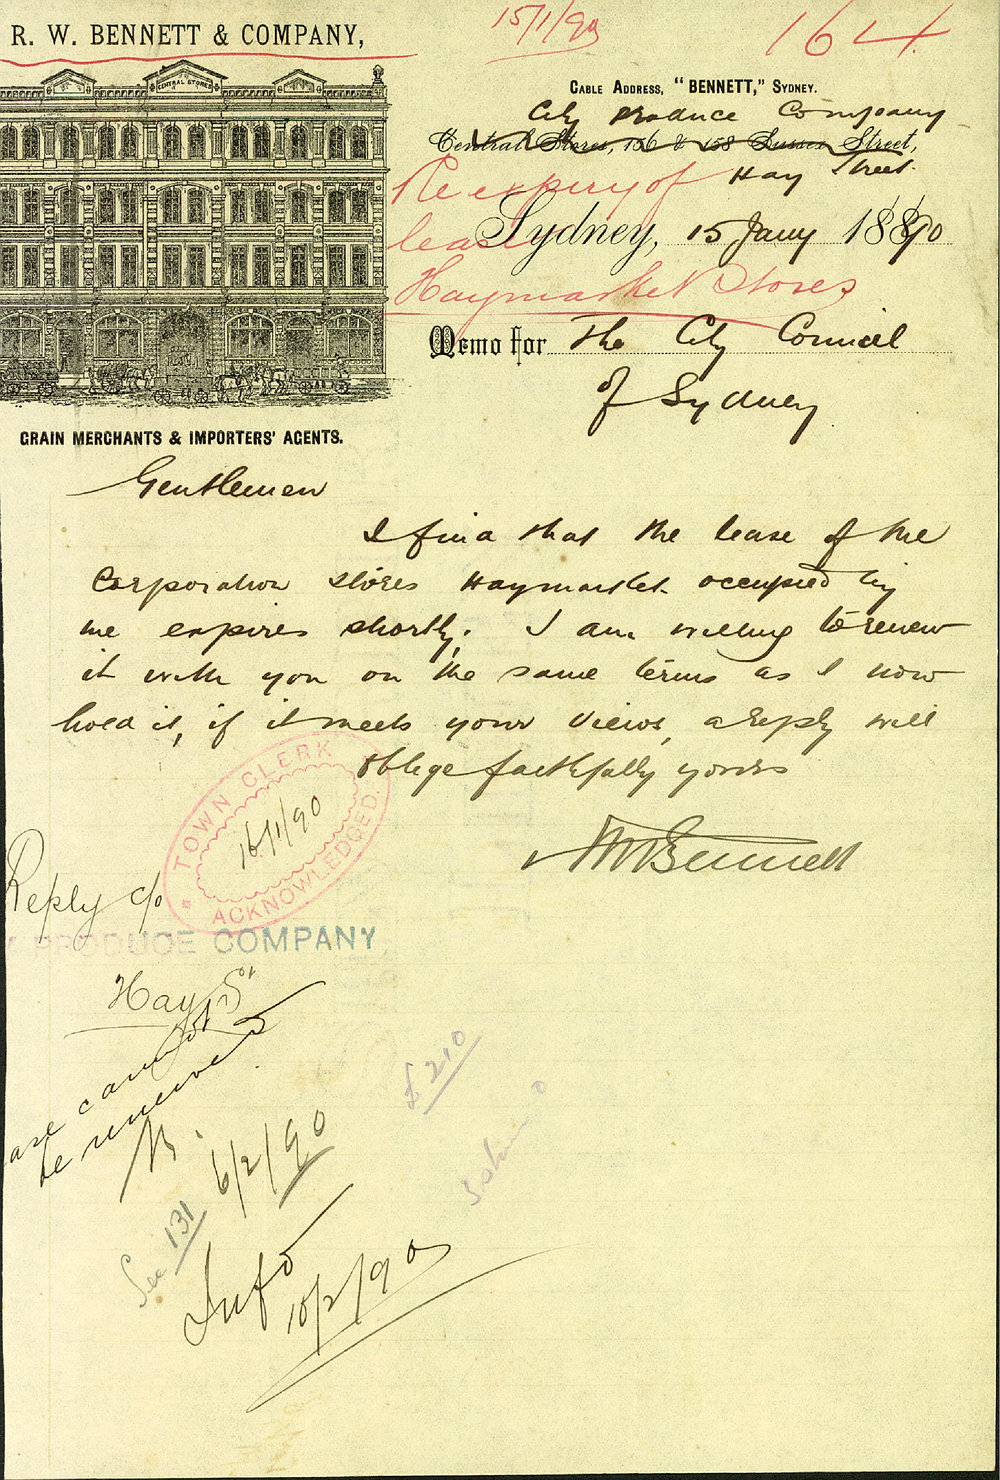 15/1/90
164
R. W. BENNETT & COMPANY,
CENTRAL STORES
CABLE ADDRESS, "BENNETT," SYDNEY.
City Produce Company
Central Stores, 156 & 158 Sussex Street,
Hay Street.
Re expiry of
lease
Haymarket Stores
Sydney, 15 Jany 1890
Memo for The City Council
of Sydney
GRAIN MERCHANTS & IMPORTERS' AGENTS.
Gentlemen
I find that the lease of the
Corporation Stores Haymarket occupied by
me expires shortly. I am willing to renew
it with you on the same terms as I now
hold it, if it meets your views, a reply will
oblige faithfully yours
RWBennett
TOWN CLERK
16/1/90
ACKNOWLEDGED.
Reply c/o
PRODUCE COMPANY
Hay St
cannot
be renewed
6/2/90
£210
See 131
Info
10/2/90